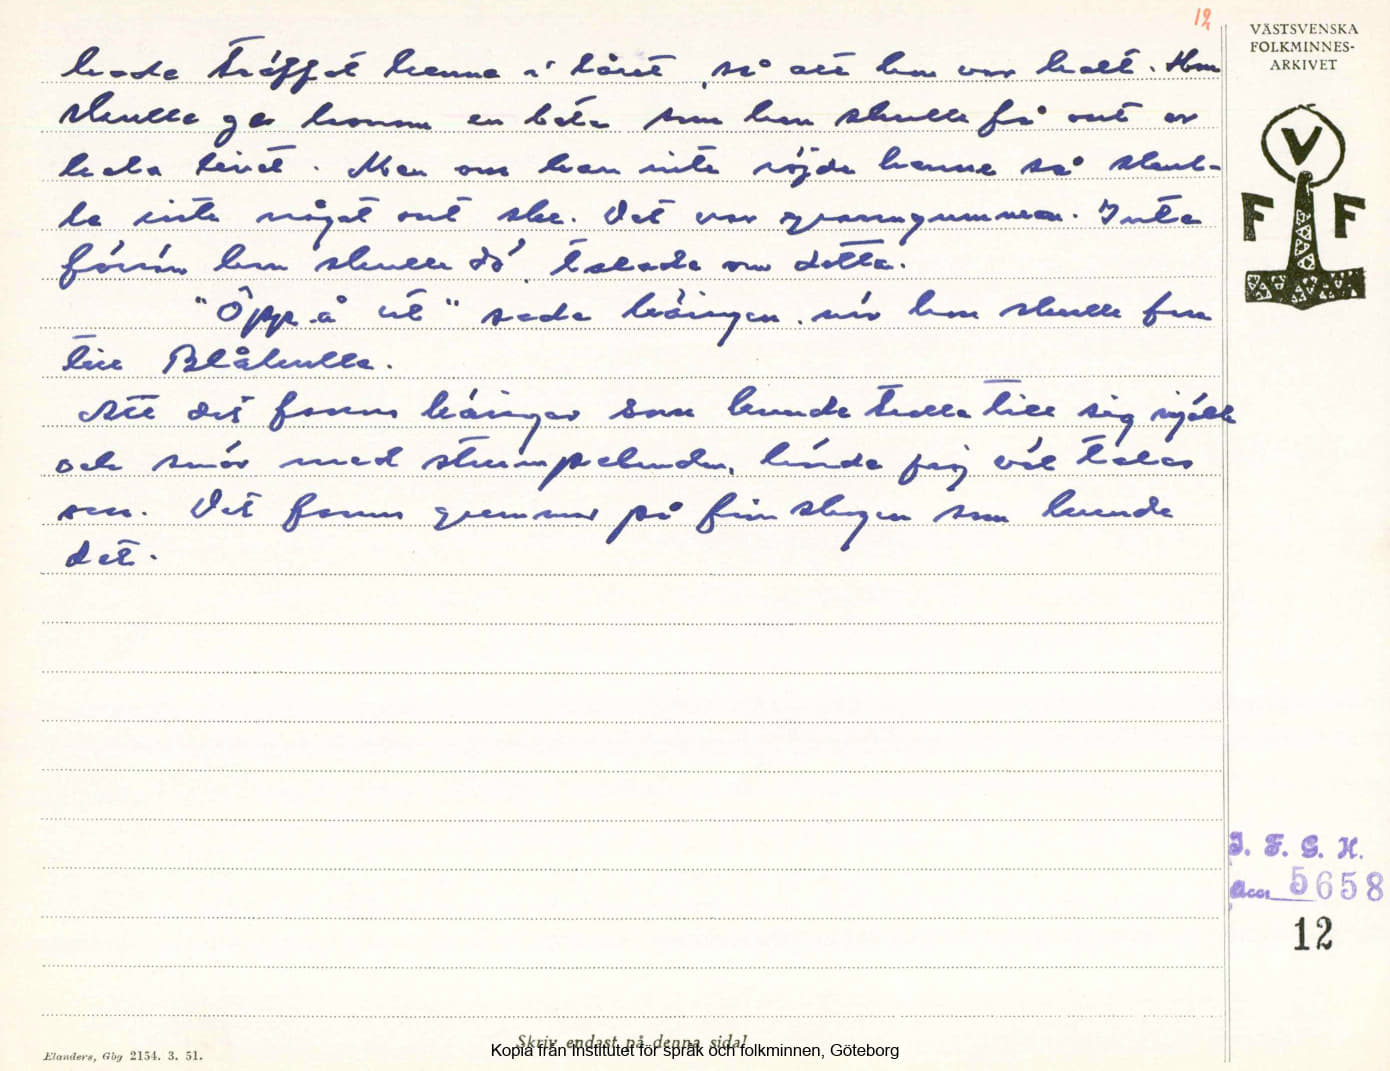 12
VÄSTSVENSKA
FOLKMINNES-
ARKIVET
hade träffat henne i låret, så att hon var halt. Hon
skulle ge honom en bete som han skulle få ont av
hela livet. Men om han inte röjde henne så skul-
le inte något ont ske. Det var granngumman. Inte
förrän hon skulle dö talade om detta.
"Öpp å ut" sade käringen, när hon skulle fara
till Blåkulla.
Att det fanns käringar som kunde trolla till sig mjölk
och smör med stumpabinda, hörde jag väl talas
om. Det fanns gummor på finskogen som kunde
det.
V
F F
I. F. G. H.
Acc. 5658
12
Skriv endast på denna sida!
Elanders, Gbg 2154. 3. 51.
Kopia från Institutet för språk och folkminnen, Göteborg